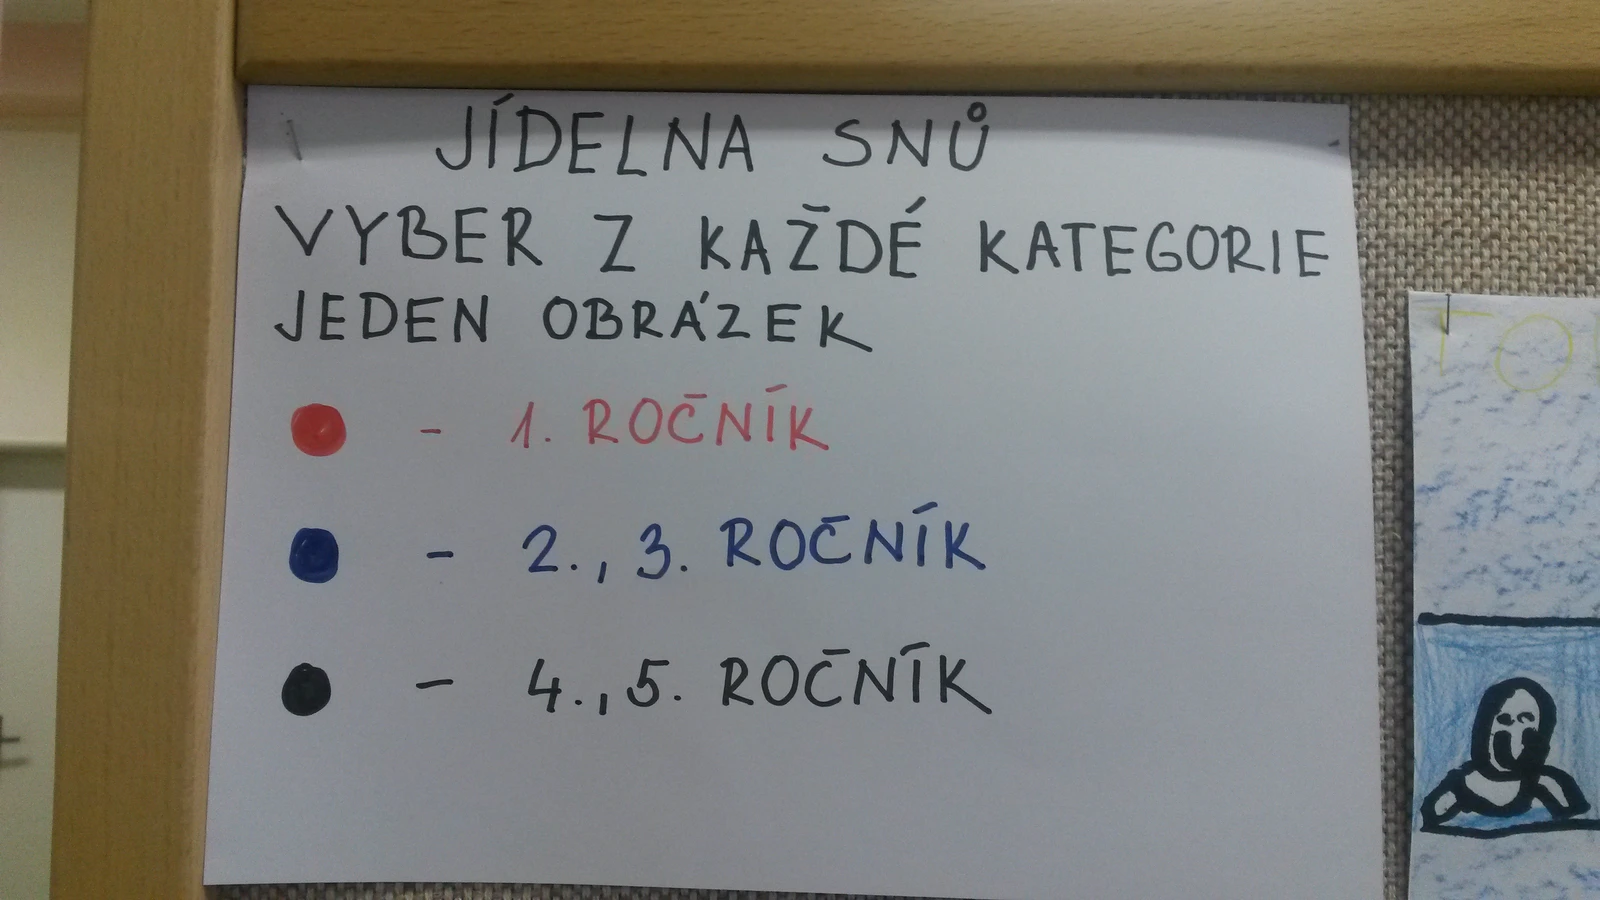 JÍDELNA SNŮ
VYBER Z KAŽDÉ KATEGORIE
JEDEN OBRÁZEK
- 1. ROČNÍK
- 2., 3. ROČNÍK
- 4., 5. ROČNÍK